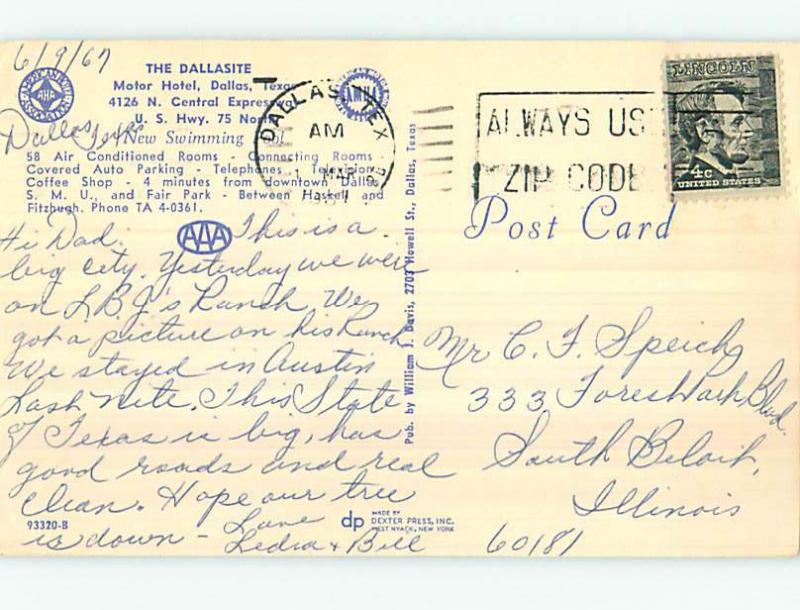 6/9/67
THE DALLASITE
Motor Hotel, Dallas, Texas
4126 N. Central Expressway
U. S. Hwy. 75 North
Dallas, Texas
New Swimming Pool
58 Air Conditioned Rooms - Connecting Rooms
Covered Auto Parking - Telephones - Television
Coffee Shop - 4 minutes from downtown Dallas
S. M. U., and Fair Park - Between Haskell and
Fitzhugh. Phone TA 4-0361.
AMERICAN HOTEL ASSOCIATION
AHA
AAA
DALLAS, TEX
AM
MAR
ALWAYS USE
ZIP CODE
LINCOLN
4c
UNITED STATES
Post Card
Hi Dad. This is a
big city. Yesterday we were
on L.B.J's Ranch. We
got a picture on his Ranch.
We stayed in Austin
Last nite. This State
of Texas is big, has
good roads and real
clean. Hope our tree
is down - Love
Ledra + Bill
Pub. by William J. Davis, 2703 Howell St., Dallas, Texas
Mr C. F. Speich
333 Forest Park Blvd.
South Beloit,
Illinois
60181
93320-B
dp
MADE BY
DEXTER PRESS, INC.
WEST NYACK, NEW YORK